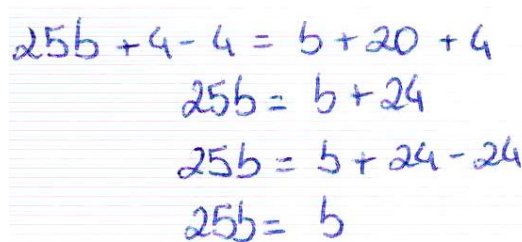 25b + 4 - 4 = b + 20 + 4
25b = b + 24
25b = b + 24 - 24
25b = b